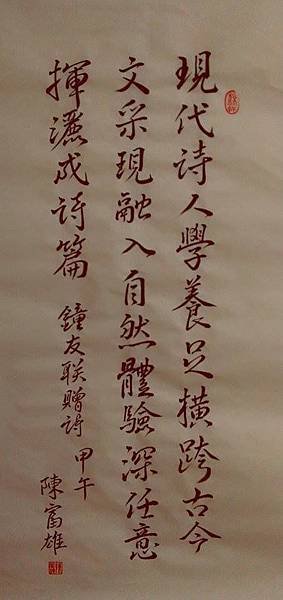 現代詩人學養足橫跨古今
文采現融入自然體驗深任意
揮灑成詩篇
鐘友联贈詩 甲午
陳富雄